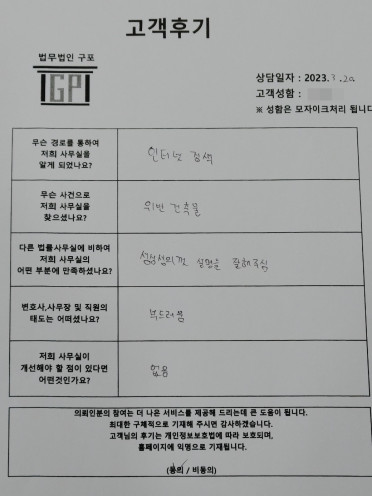 고객후기
법무법인 구포
GP
상담일자 : 2023. 3. 20.
고객성함 :
※ 성함은 모자이크처리 됩니다
무슨 경로를 통하여
저희 사무실을
알게 되었나요?
인터넷 검색
무슨 사건으로
저희 사무실을
찾으셨나요?
위반 건축물
다른 법률사무실에 비하여
저희 사무실의
어떤 부분에 만족하셨나요?
성심성의껏 설명을 잘해주심
변호사,사무장 및 직원의
태도는 어떠셨나요?
부드러움
저희 사무실이
개선해야 할 점이 있다면
어떤것인가요?
없음
의뢰인분의 참여는 더 나은 서비스를 제공해 드리는데 큰 도움이 됩니다.
최대한 구체적으로 기재해 주시면 감사하겠습니다.
고객님의 후기는 개인정보보호법에 따라 보호되며,
홈페이지에 익명으로 기재됩니다.
(동의 / 비동의)